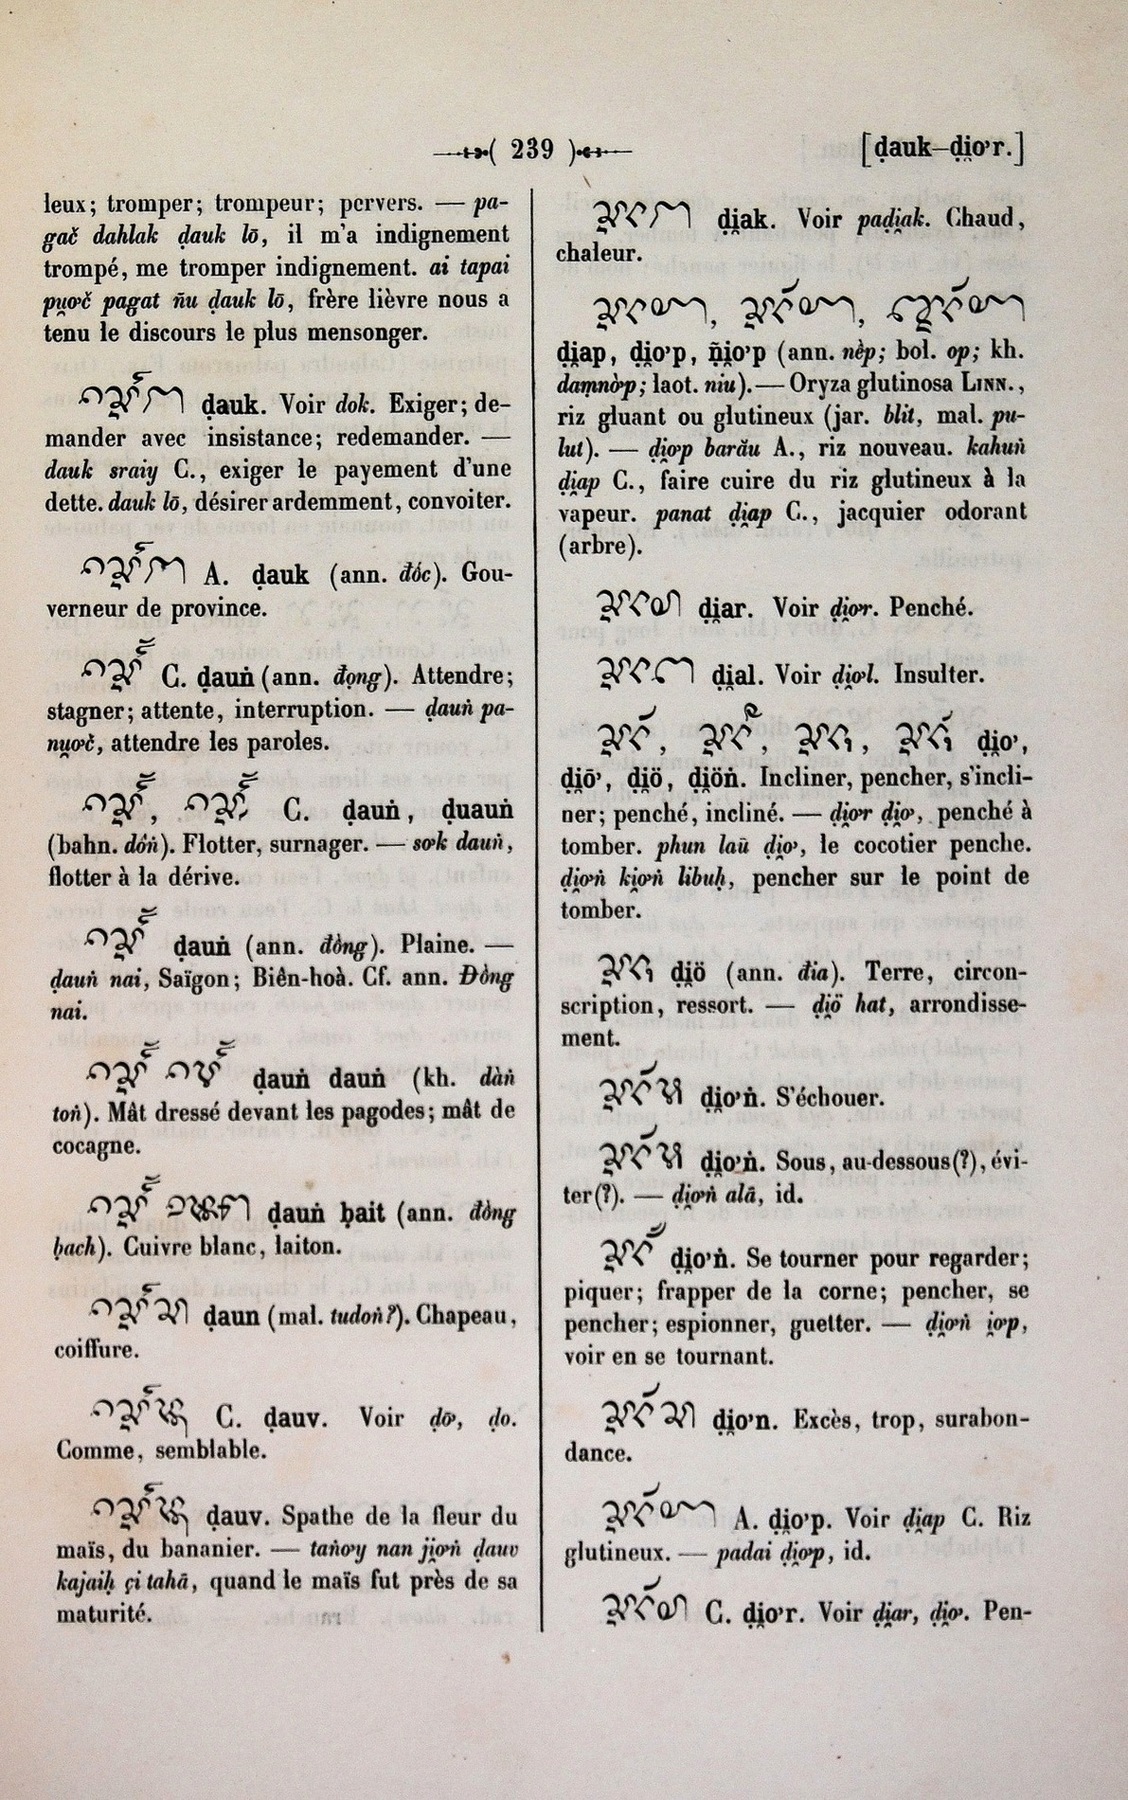 ( 239 )
[ḍauk–ḍi̯ơr.]
leux; tromper; trompeur; pervers. — pa-
gač dahlak ḍauk lō, il m'a indignement
trompé, me tromper indignement. ai tapai
pu̯ơč pagat ñu ḍauk lō, frère lièvre nous a
tenu le discours le plus mensonger.
ḍauk. Voir dok. Exiger; de-
mander avec insistance; redemander. —
dauk sraiy C., exiger le payement d'une
dette. dauk lō, désirer ardemment, convoiter.
A. ḍauk (ann. đốc). Gou-
verneur de province.
C. ḍauṅ (ann. đọng). Attendre;
stagner; attente, interruption. — ḍauṅ pa-
nu̯ơč, attendre les paroles.
C. ḍauṅ, ḍuauṅ
(bahn. dôṅ). Flotter, surnager. — sơk dauṅ,
flotter à la dérive.
ḍauṅ (ann. đồng). Plaine. —
ḍauṅ nai, Saïgon; Biên-hoà. Cf. ann. Đồng
nai.
ḍauṅ dauṅ (kh. dàṅ
toṅ). Mât dressé devant les pagodes; mât de
cocagne.
ḍauṅ ḅait (ann. đồng
ḅach). Cuivre blanc, laiton.
ḍaun (mal. tudoṅ?). Chapeau,
coiffure.
C. ḍauv. Voir ḍơ̄, ḍo.
Comme, semblable.
ḍauv. Spathe de la fleur du
maïs, du bananier. — taṅơy nan ji̯ơṅ ḍauv
kajaiḥ çi tahā, quand le maïs fut près de sa
maturité.
ḍi̯ak. Voir paḍi̯ak. Chaud,
chaleur.
ḍi̯ap, ḍi̯ơp, ṇ̃i̯ơp (ann. nèp; bol. op; kh.
daṃnờp; laot. niu). — Oryza glutinosa LINN.,
riz gluant ou glutineux (jar. blit, mal. pu-
lut). — ḍi̯ơp barău A., riz nouveau. kahuṅ
ḍi̯ap C., faire cuire du riz glutineux à la
vapeur. panat ḍi̯ap C., jacquier odorant
(arbre).
ḍi̯ar. Voir ḍi̯ơr. Penché.
ḍi̯al. Voir ḍi̯ơl. Insulter.
ḍi̯ơ,
ḍi̯ơ̄, ḍi̯ö, ḍi̯öṅ. Incliner, pencher, s'incli-
ner; penché, incliné. — ḍi̯ơr ḍi̯ơ, penché à
tomber. phun laū ḍi̯ơ, le cocotier penche.
ḍi̯ơṅ ki̯ơṅ libuḥ, pencher sur le point de
tomber.
ḍi̯ö (ann. đia). Terre, circon-
scription, ressort. — ḍi̯ö hat, arrondisse-
ment.
ḍi̯ơṅ. S'échouer.
ḍi̯ơṅ. Sous, au-dessous(?), évi-
ter(?). — ḍi̯ơṅ alā, id.
ḍi̯ơṅ. Se tourner pour regarder;
piquer; frapper de la corne; pencher, se
pencher; espionner, guetter. — ḍi̯ơṅ i̯ơp,
voir en se tournant.
ḍi̯ơn. Excès, trop, surabon-
dance.
A. ḍi̯ơp. Voir ḍi̯ap C. Riz
glutineux. — padai ḍi̯ơp, id.
C. ḍi̯ơr. Voir ḍi̯ar, ḍi̯ơ. Pen-